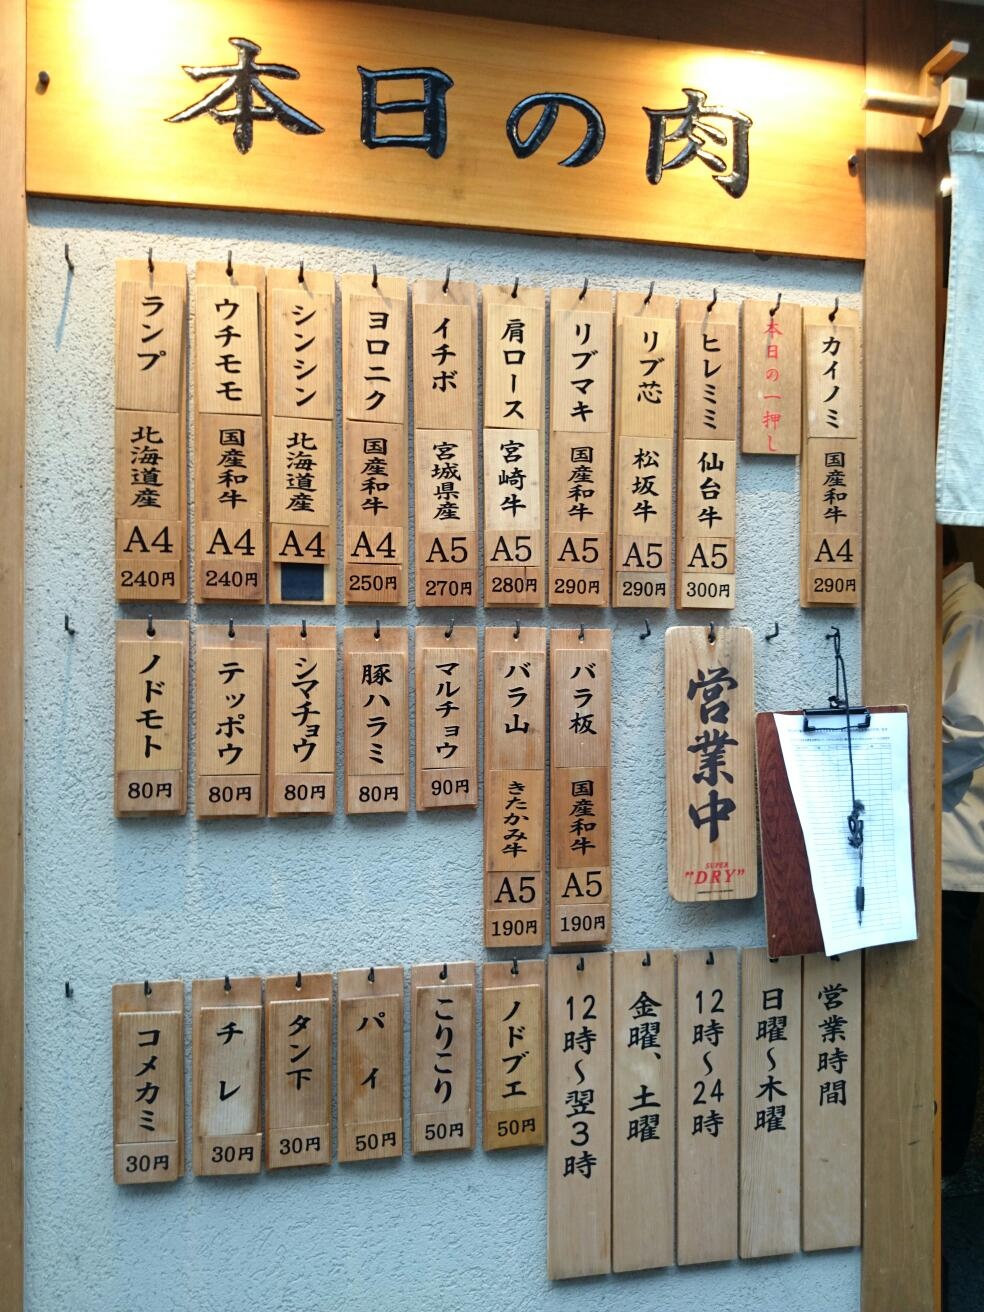 本日の肉
カイノミ
国産和牛
A4
290円
本日の一押し
ヒレミミ
仙台牛
A5
300円
リブ芯
松坂牛
A5
290円
リブマキ
国産和牛
A5
290円
肩ロース
宮崎牛
A5
280円
イチボ
宮城県産
A5
270円
ヨロニク
国産和牛
A4
250円
シンシン
北海道産
A4
ウチモモ
国産和牛
A4
240円
ランプ
北海道産
A4
240円
営業中
SUPER
"DRY"
バラ板
国産和牛
A5
190円
バラ山
きたかみ牛
A5
190円
マルチョウ
90円
豚ハラミ
80円
シマチョウ
80円
テッポウ
80円
ノドモト
80円
営業時間
日曜～木曜
12時～24時
金曜、土曜
12時～翌3時
ノドブエ
50円
こりこり
50円
パイ
50円
タン下
30円
チレ
30円
コメカミ
30円